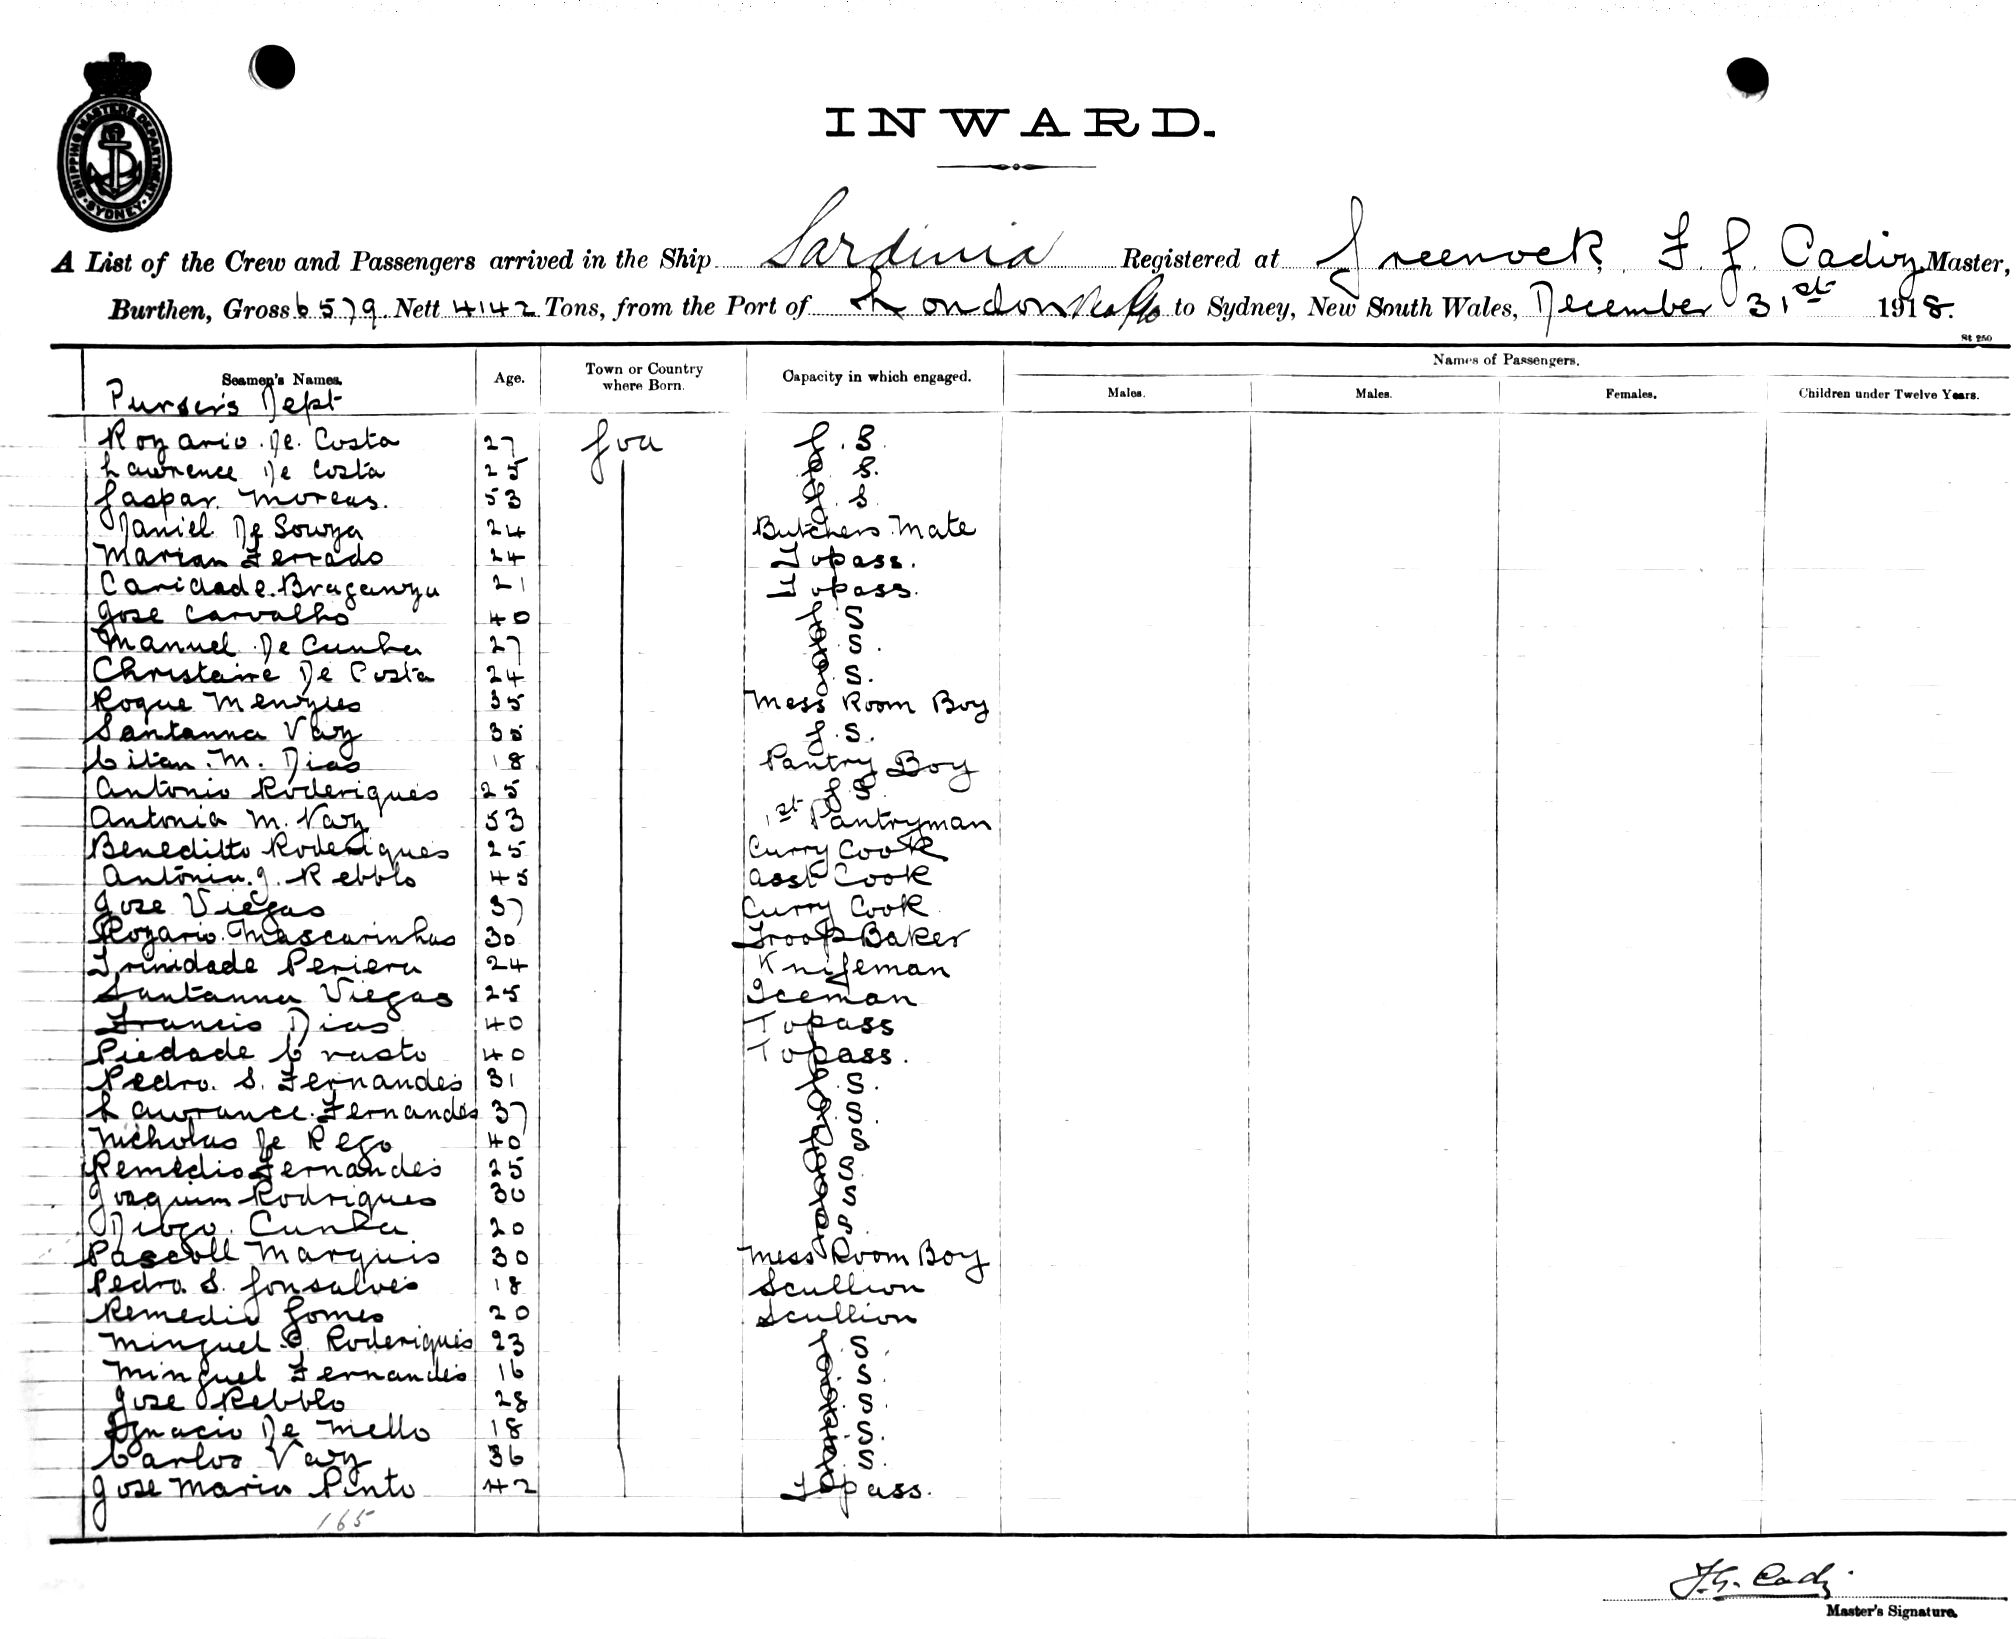 SHIPPING MASTERS DEPARTMENT
SYDNEY
INWARD.
A List of the Crew and Passengers arrived in the Ship Sardinia Registered at Greenock F G Cadiz Master,
Burthen, Gross 6579. Nett 4142 Tons, from the Port of London to Sydney, New South Wales, December 31st 1918.
St 250
Seamen's Names. Age. Town or Country where Born. Capacity in which engaged. Names of Passengers.
Males. Males. Females. Children under Twelve Years.
Purser's Dept
Rozario De Costa 27 Goa G. S.
Lawrence De Costa 25 G S.
Gaspar Moreas. 53 G S
Daniel De Souza 24 Butchers Mate
Marian Ferrado 24 Topass.
Caridade Braganza 21 Topass.
Jose Carvalho 40 G S
Manuel De Cunha 27 G S.
Christaine De Costa 24 G S.
Roque Menzies 35 Mess Room Boy
Santanna Vaz 35 G. S.
Citan M. Dias 18 Pantry Boy
Antonio Roderigues 25 G S
Antonia M. Vaz 53 1st Pantryman
Beneditto Roderigues 25 Curry Cook
Antonia J. Rebblo 45 Asst Cook
Jose Viegas 37 Curry Cook
Rozario Mascarinhas 30 Troop Baker
Trinidade Periera 24 Knifeman
Santanna Viegas 25 Iceman
Francis Dias 40 Topass
Piedade Crasto 40 Topass.
Pedro. S. Fernandes 31 G. S.
Lawrance Fernandes 37 G. S.
Nicholas De Rego 40 G S
Remedio Fernandes 25 G S.
Joaquim Rodrigues 30 G S
Diogo Cunha 20 G S.
Pascoll Marquis 30 Mess Room Boy
Pedro. S. Gonsalves 18 Scullion
Remedio Gomes 20 Scullion
Minguel C. Roderigues 23 G. S.
Minguel Fernandes 16 G. S.
Jose Rebblo 28 G. S.
Ignacio De Mello 18 G. S.
Carlos Vaz 36 G. S.
Jose Maria Pinto 42 Topass.
165
F.G. Cadiz
Master's Signature.